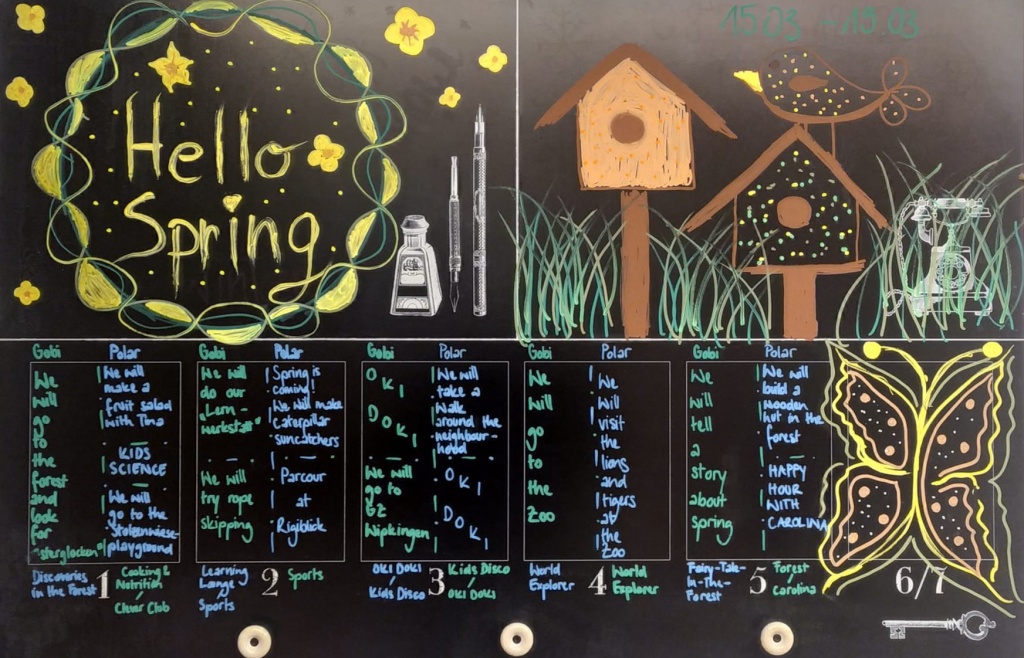 Hello
Spring
15.03 - 19.03
Gobi
We
will
go
to
the
forest
and
look
for
"sterglocken"
Polar
We will
make a
fruit salad
with Tina
KIDS
SCIENCE
We will
go to the
Stolzenwiese-
playground
Discoveries
in the Forest
1
Cooking &
Nutrition
/
Clever Club
Gobi
We will
do our
"Lern-
werkstatt"
We will
try rope
skipping
Polar
Spring is
coming!
We will make
caterpillar
suncatchers
Parcour
at
Rigiblick
Learning
Lounge
/
Sports
2
Sports
Gobi
OKI
DOKI
We will
go to
GZ
Wipkingen
Polar
We will
take a
walk
around the
neighbour-
hood
OKI
DOKI
OKI DOKI
/
Kids Disco
3
Kids Disco
/
OKI DOKI
Gobi
We
will
go
to
the
Zoo
Polar
We
will
visit
the
lions
and
tigers
at
the
Zoo
World
Explorer
4
World
Explorer
Gobi
We
will
tell
a
story
about
spring
Polar
We will
build a
wooden
hut in the
forest
HAPPY
HOUR
WITH
CAROLINA
Fairy-Tale-
In-The-
Forest
5
Forest
/
Carolina
6/7